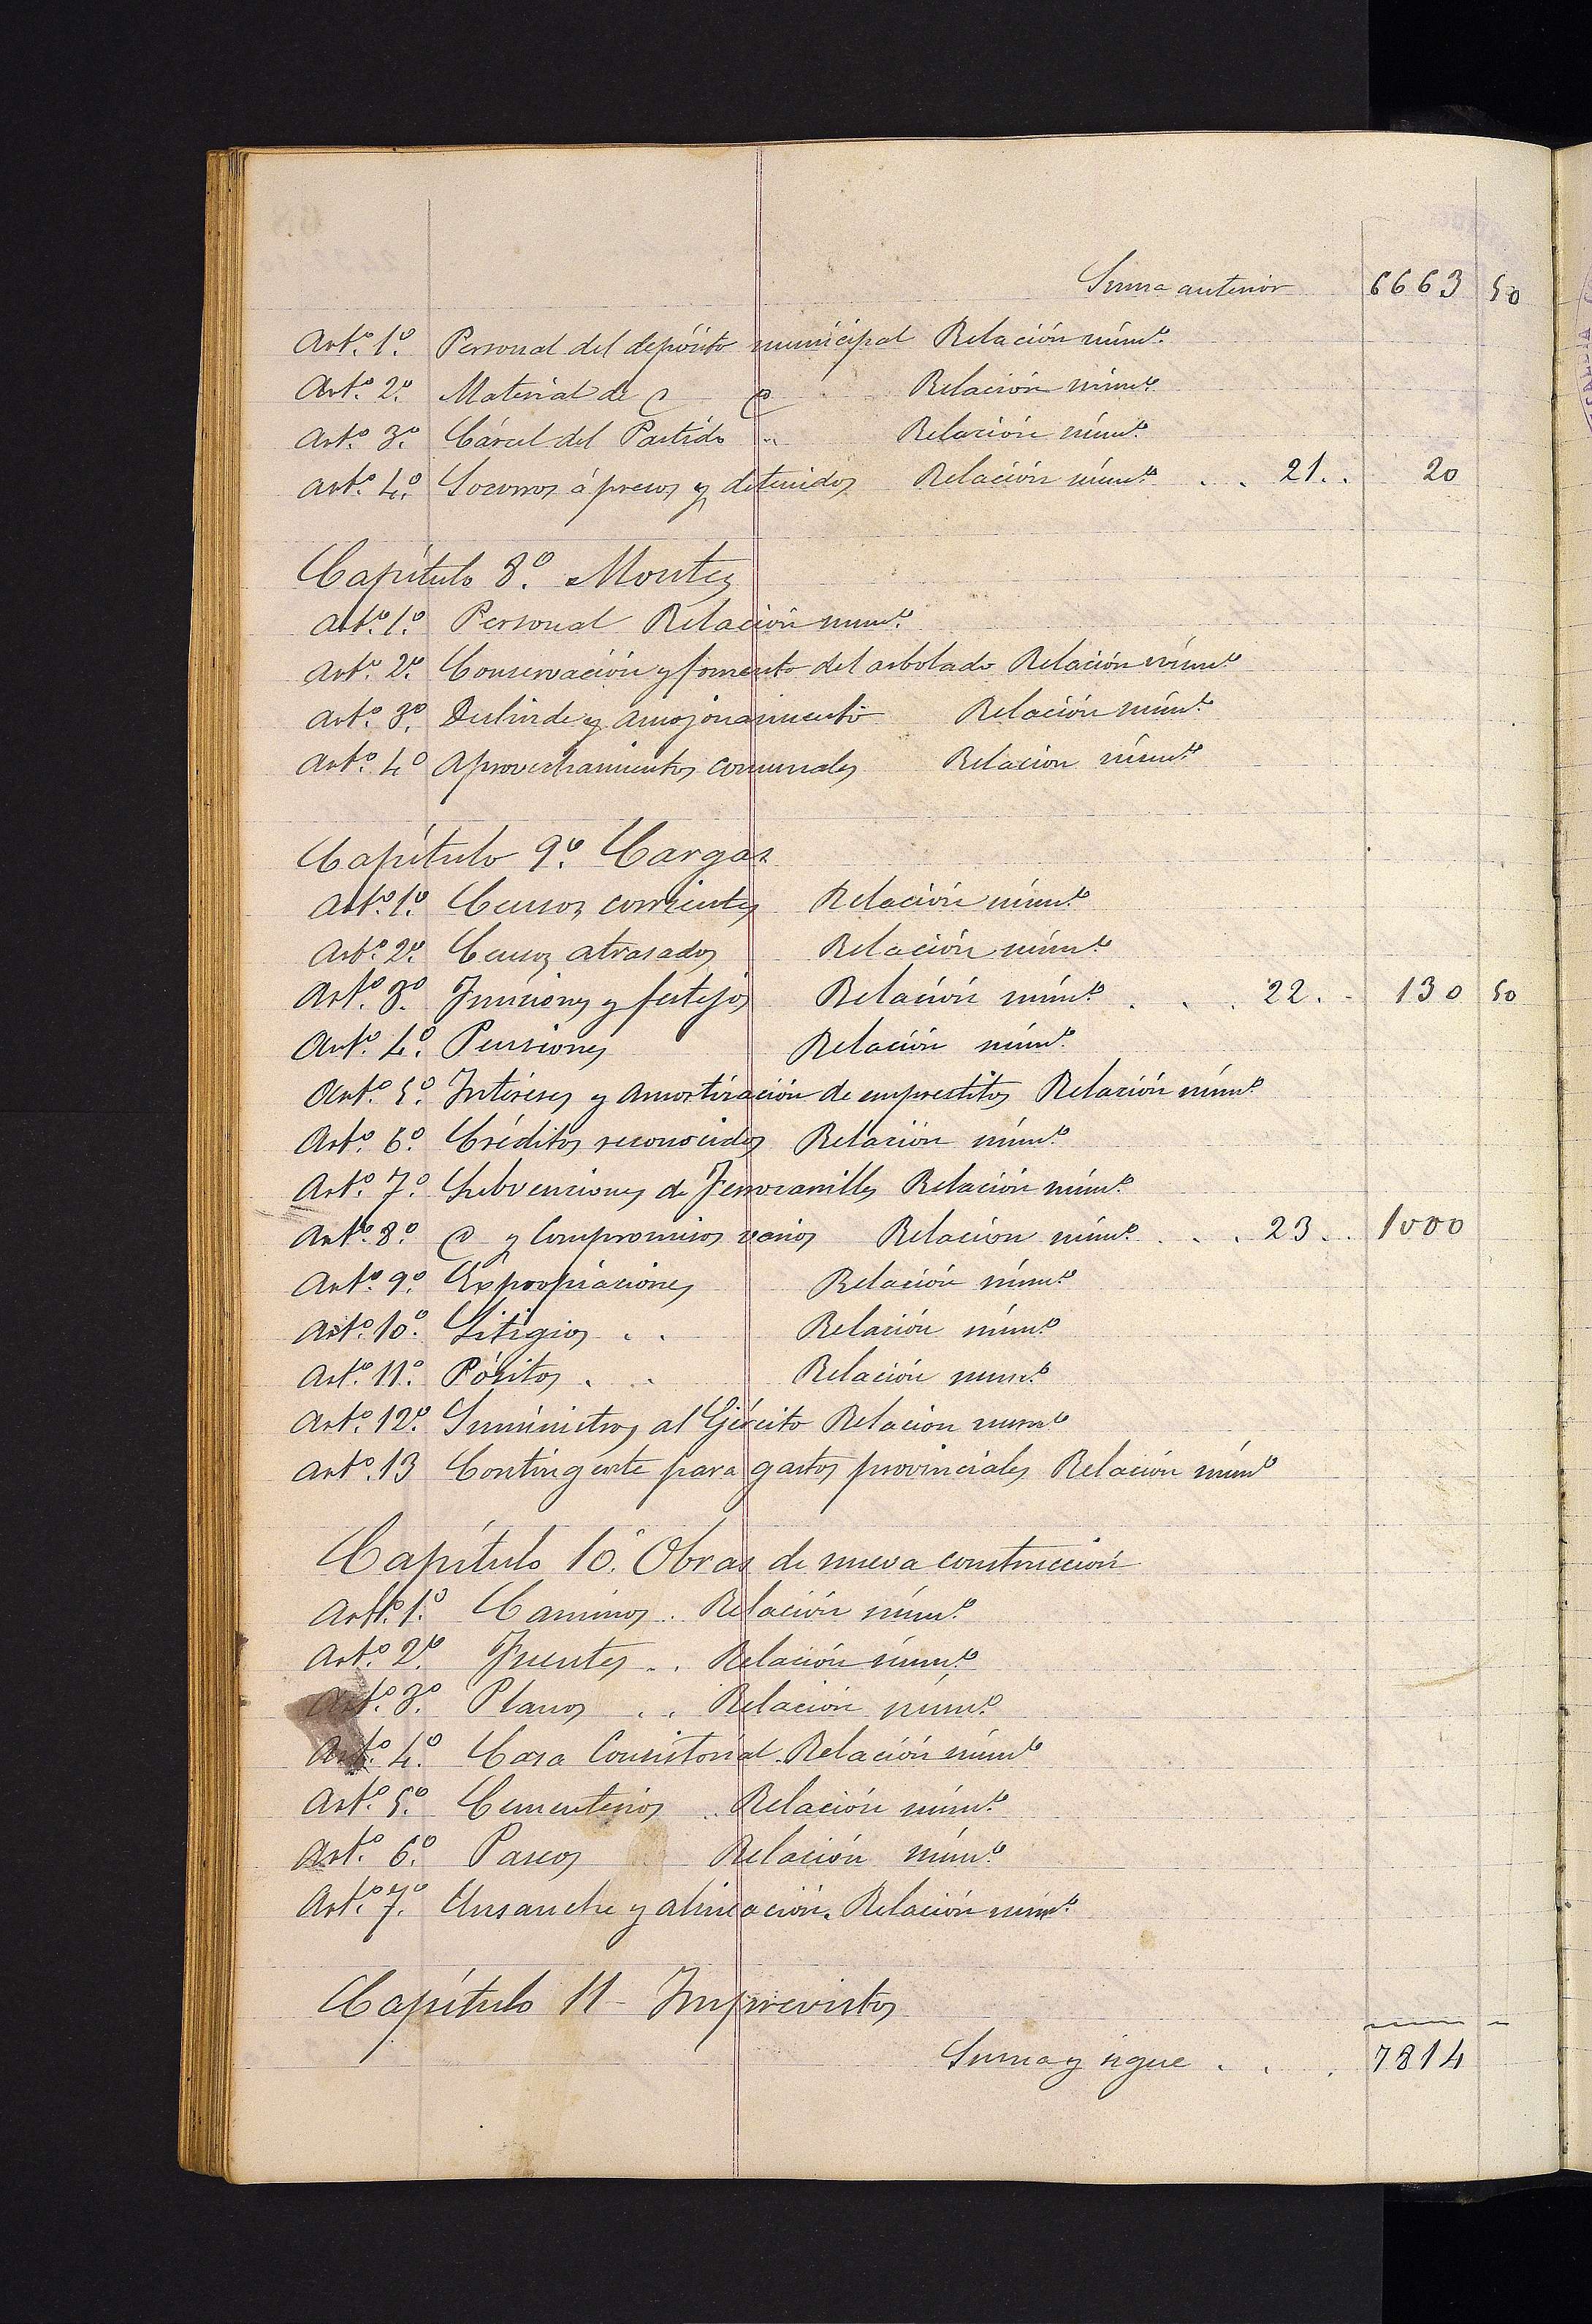 Suma anterior 6663 50
Artº. 1º. Personal del depósito municipal Relación númº.
Artº. 2º. Material de Relación númº.
Artº. 3º. Cárcel del Partido " Relación númº.
Artº. 4º. Socorros á presos y detenidos Relación númº. . . 21. . 20
Capítulo 8º. Montes
Artº. 1º. Personal Relación numº.
Artº. 2º. Conservación y fomento del arbolado Relación númº.
Artº. 3º. Deslinde y amojonamiento Relación númº.
Artº. 4º Aprovechamientos comunales Relación númº.
Capítulo 9º. Cargas
Artº. 1º. Censos corrientes Relación númº.
Artº. 2º. Censos atrasados Relación númº.
Artº. 3º. Funciones y festejos Relación númº. . . . 22. . 130 50
Artº. 4º. Pensiones Relación númº.
Artº. 5º. Intereses y amortización de emprestitos Relación númº.
Artº. 6º. Créditos reconocidos Relación númº.
Artº. 7º. Subvenciones de Ferrocarriles Relación númº.
Artº. 8º. y Compromisos varios Relación númº. . . . 23. . 1000
Artº. 9º. Expropiaciones Relación númº.
Artº. 10º. Litigios . . Relación númº.
Artº. 11º. Pósitos . . Relación numº.
Artº. 12º. Suministros al Ejército Relación numº
Artº. 13 Contingente para gastos provinciales Relación númº
Capítulo 10º. Obras de nueva construcción
Artº. 1º. Caminos . . Relación númº.
Artº. 2º. Fuentes . . Relación númº.
Artº. 3º. Planos . . Relación númº.
Artº. 4º. Casa Consistorial. Relación númº
Artº. 5º. Cementerios . . Relación númº.
Artº. 6º. Paseos Relación númº.
Artº. 7º. Ensanche y alineación. Relación númº.
Capítulo 11 - Imprevistos
Suma y sigue . . . 7814